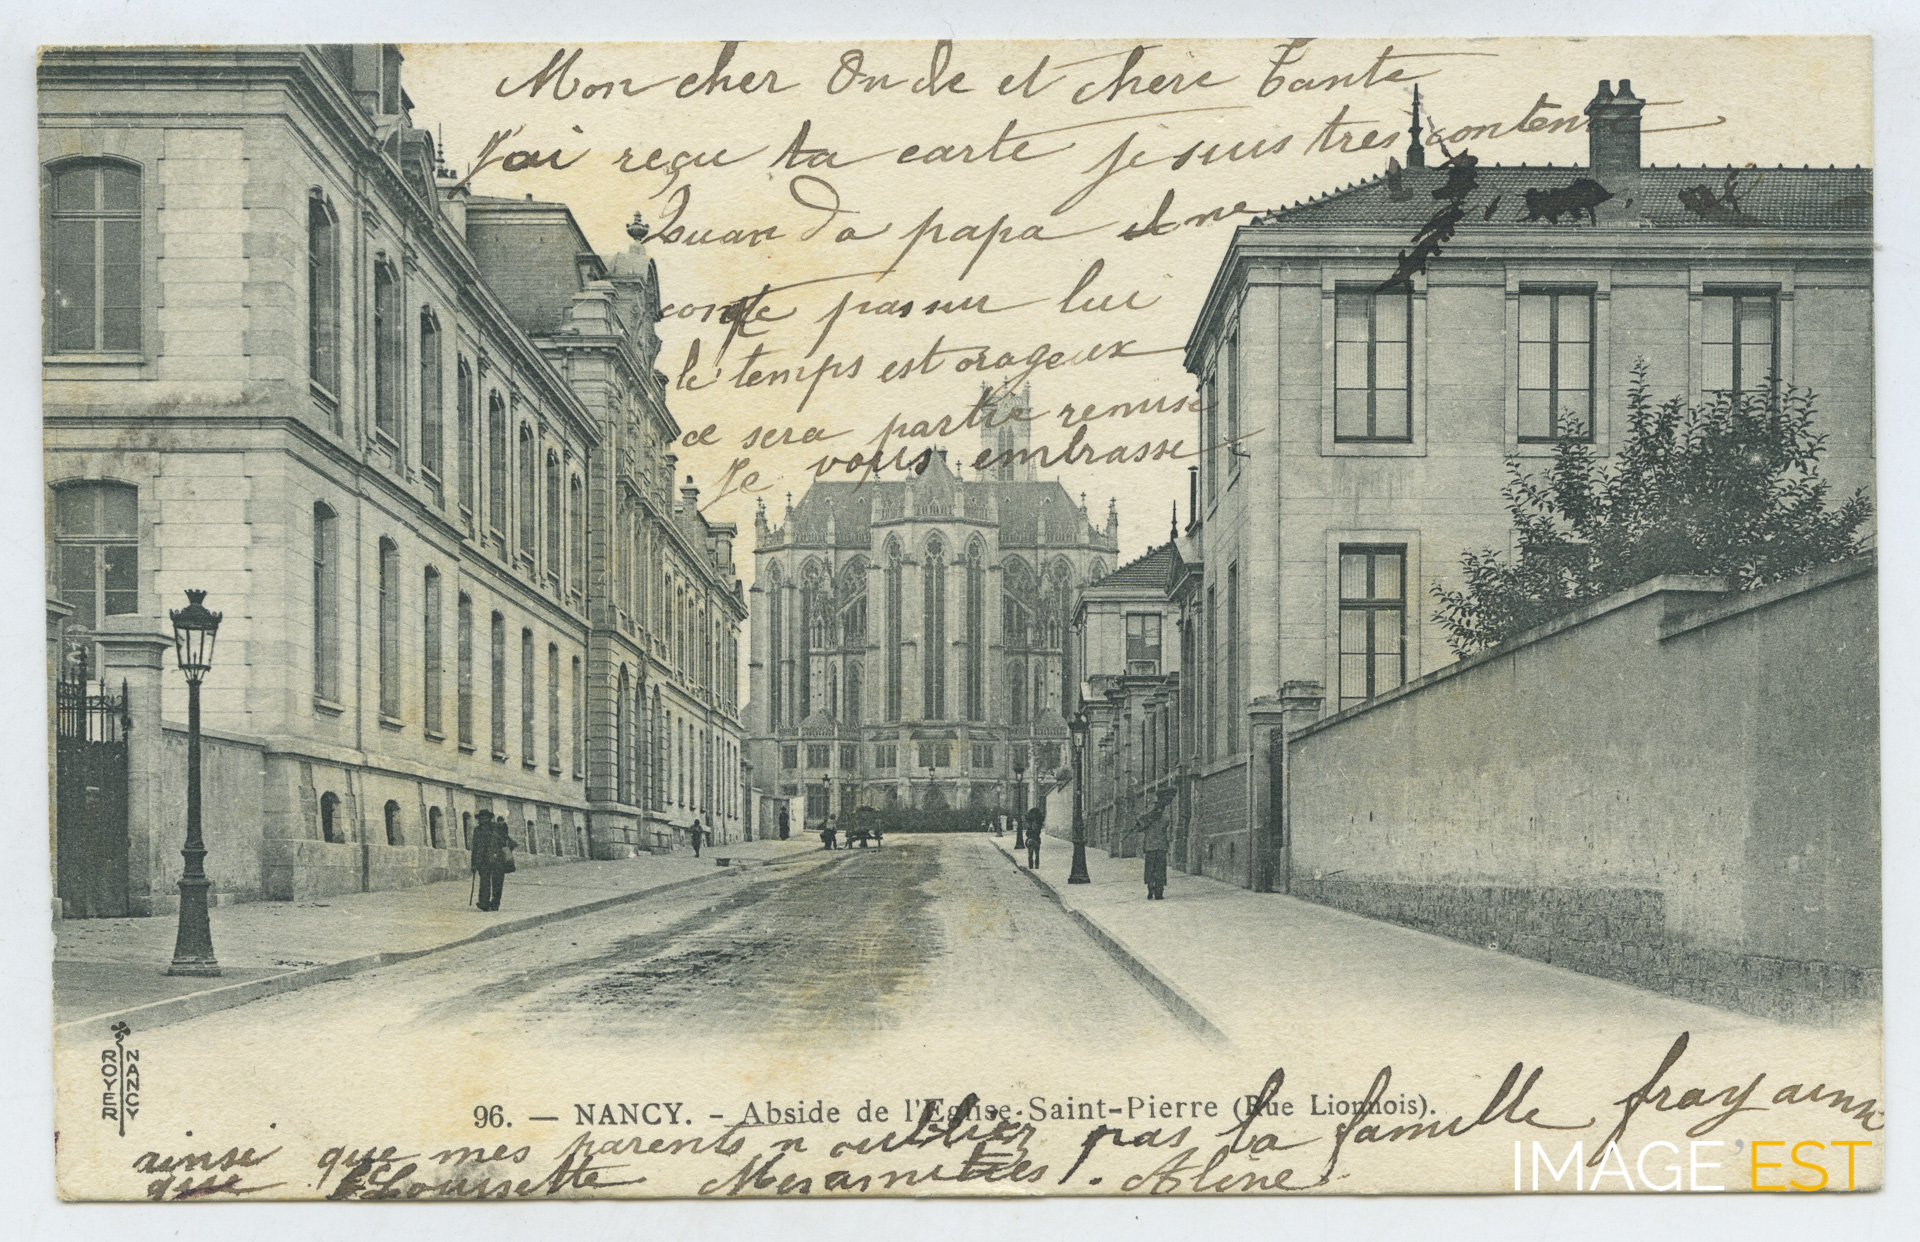 Mon cher Oncle et chere Tante
J'ai reçu ta carte je suis tres content
Quan da papa il ne
conte pas sur lui
le temps est orageux
ce sera partie remise
Je vous embrasse
ROYER NANCY
96. — NANCY. - Abside de l'Eglise-Saint-Pierre (Rue Lionnois).
ainsi que mes parents n oubliez pas la famille fray ainsi
que Louisette Mesamities. Aline
IMAGE'EST